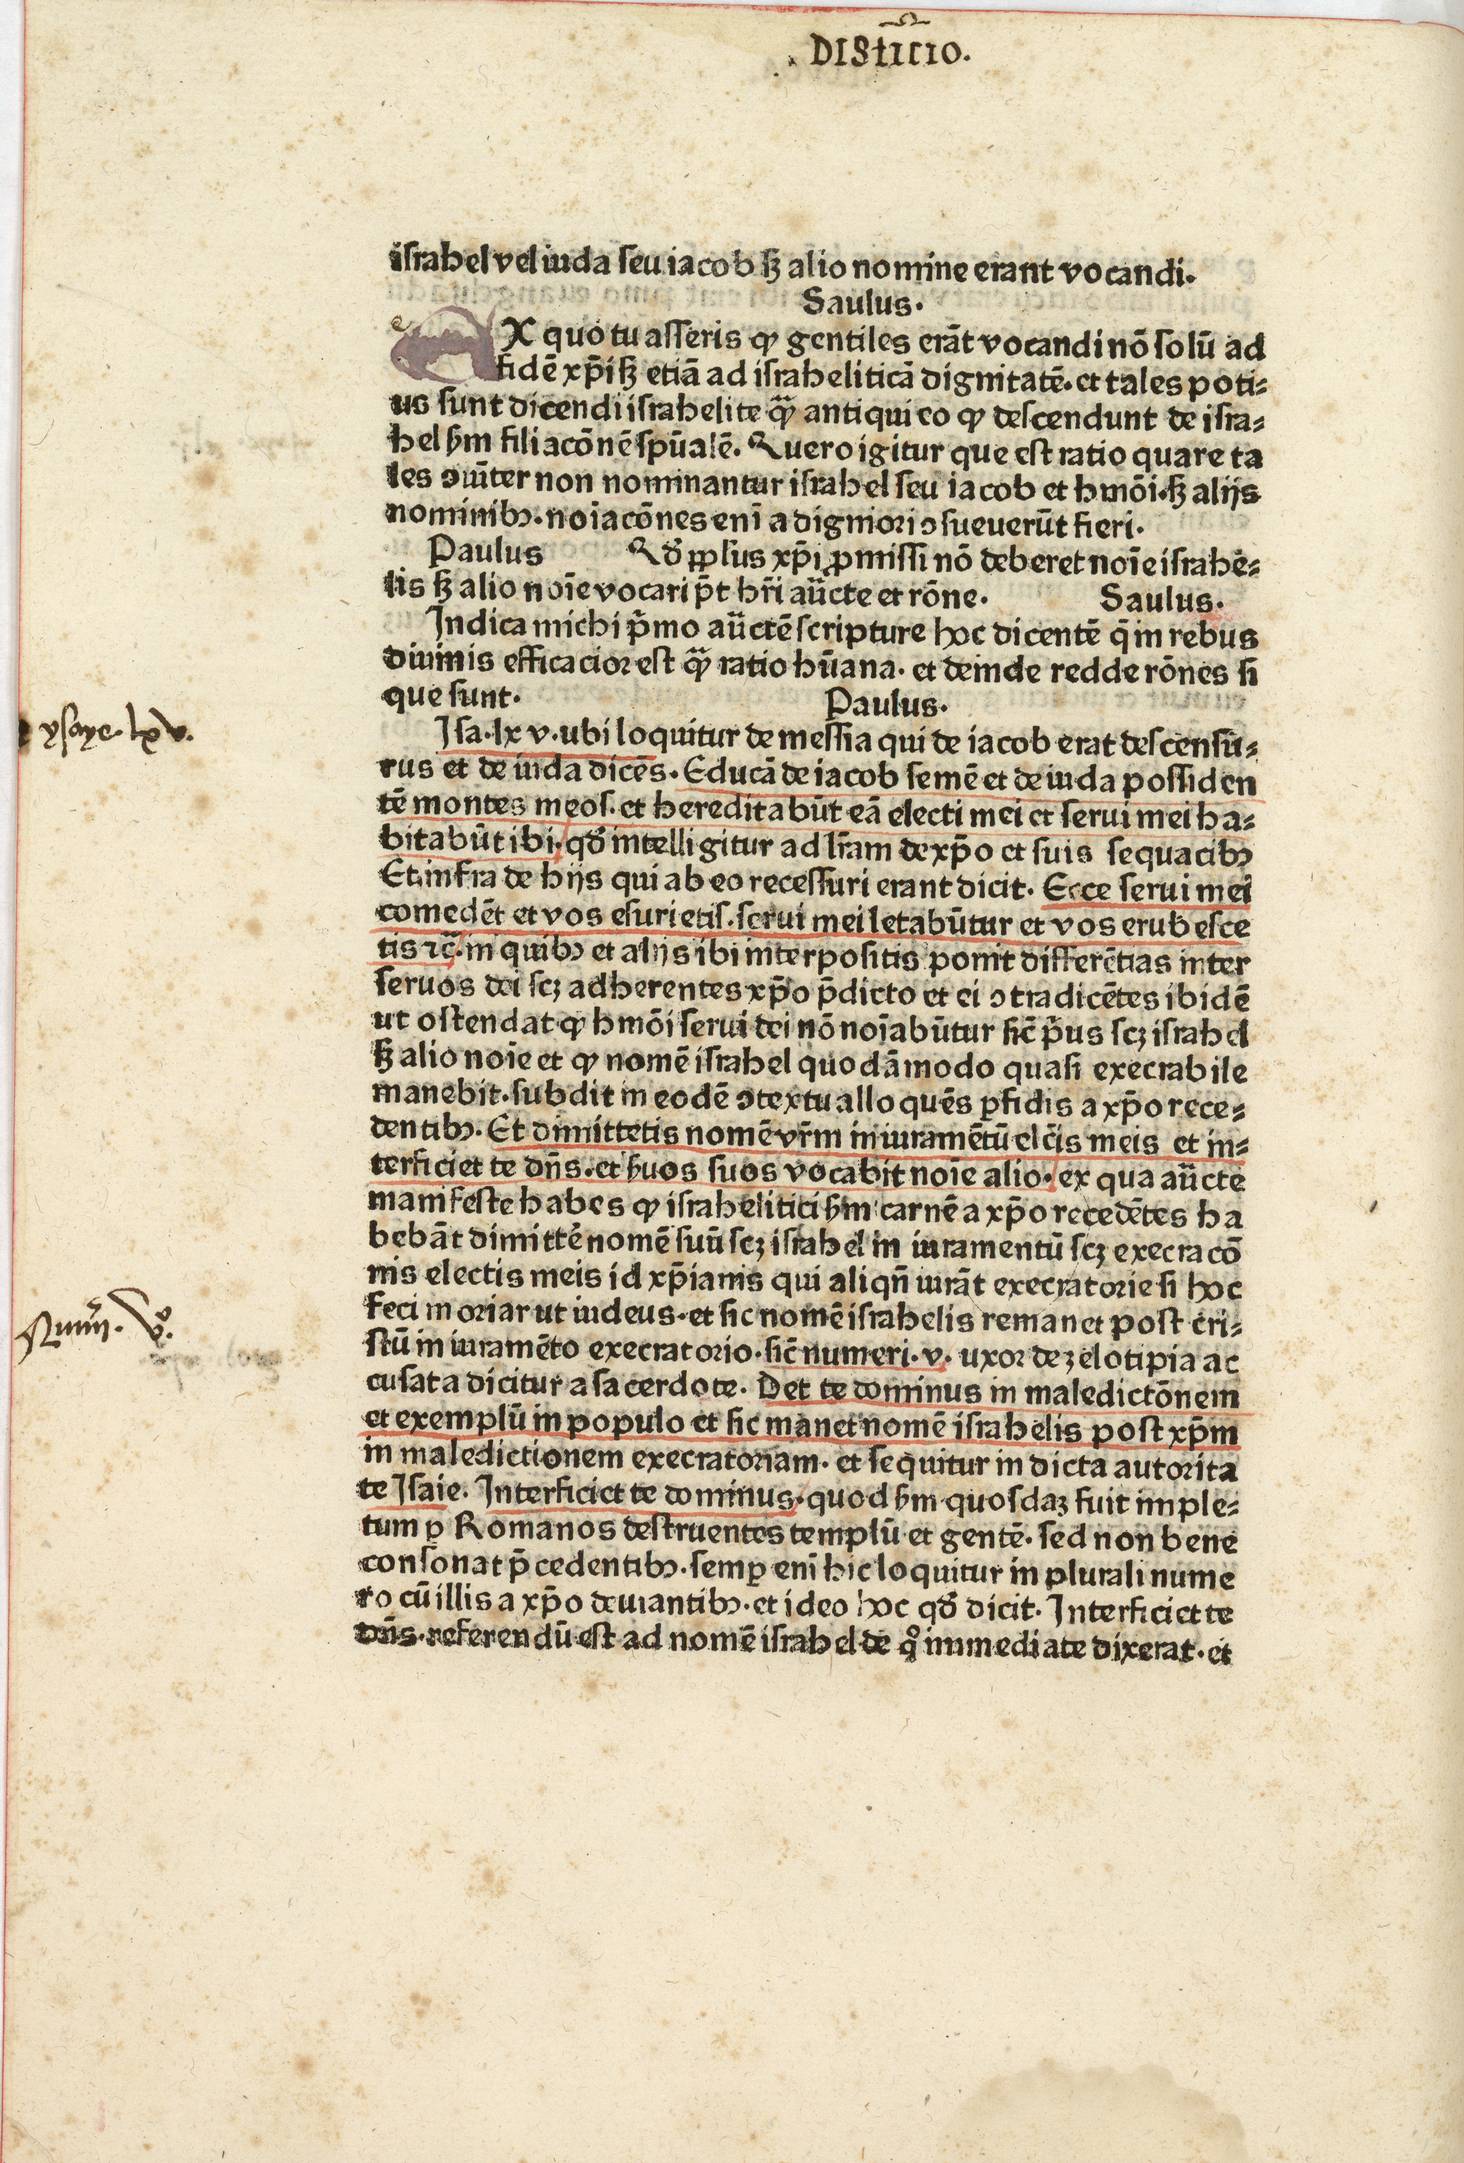 DIStīcio.
israhel vel iuda seu iacob sꝫ alio nomine erant vocandi.
Saulus.
EX quo tu asseris ꝙ gentiles erāt vocandi nō solū ad
fidē xp̄i sꝫ etiā ad israheliticā dignitatē. et tales poti⸗
us sunt dicendi israhelite q̄ꝫ antiqui eo ꝙ descendunt de isra⸗
hel ẜm filiacōnē spūalē. Quero igitur que est ratio quare ta
les ↄiūter non nominantur israhel seu iacob et hmōi. sꝫ alijs
nominibꝫ. noīacōnes enī a digniori ↄsueuerūt fieri.
Paulus Qđ ppl̄us xp̄i ꝓmissi nō deberet noīe israhe⸗
lis sꝫ alio noīe vocari p̄t hr̄i auc̄te et rōne. Saulus.
Indica michi p̄mo auc̄tē scripture hoc dicentē q̄ in rebus
diuinis efficacior est q̄ꝫ ratio hūana. et deinde redde rōnes si
que sunt. Paulus.
ysaye. lxv.
Isa. lxv. ubi loquitur de messia qui de iacob erat descensu⸗
rus et de iuda dicēs. Educā de iacob semē et de iuda possiden
tē montes meos. et hereditabūt eā electi mei et serui mei ha⸗
bitabūt ibi. qđ intelligitur ad lr̄am de xp̄o et suis sequacibꝫ
Et infra de hijs qui ab eo recessuri erant dicit. Ecce serui mei
comedēt et vos esurietis. serui mei letabūtur et vos erubesce
tis ⁊c̄. in quibꝫ et alijs ibi interpositis ponit differētias inter
seruos dei scꝫ adherentes xp̄o p̄dicto et ei ↄtradicētes ibidē
ut ostendat ꝙ hmōi serui dei nō noīabūtur sic̄ p̄us scꝫ israhel
sꝫ alio noīe et ꝙ nomē israhel quodāmodo quasi execrabile
manebit. subdit in eodē ↄtextu alloquēs ꝑfidis a xp̄o rece⸗
dentibꝫ. Et dimittetis nomē vr̄m in iuramētū elc̄is meis et in⸗
terficiet te dn̄s. et ẜuos suos vocabit noīe alio. ex qua auc̄te
manifeste habes ꝙ israhelitici ẜm carnē a xp̄o recedētes ha
bebāt dimittē nomē suū scꝫ israhel in iuramentū scꝫ execracō
nis electis meis id xp̄ianis qui aliqn̄ iurāt execratorie si hoc
Numeri. vº.
feci moriar ut iudeus. et sic nomē israhelis remanet post cri⸗
stū in iuramēto execratorio. sic̄ numeri. v. uxor de zelotipia ac
cusata dicitur a sacerdote. Det te dominus in maledictōnem
et exemplū in populo et sic manet nomē israhelis post xp̄m
in maledictionem execratoriam. et sequitur in dicta autorita
te Isaie. Interficiet te dominus. quod ẜm quosdaꝫ fuit imple⸗
tum ꝑ Romanos destruentes templū et gentē. sed non bene
consonat p̄cedentibꝫ. semꝑ enī hic loquitur in plurali nume
ro cū illis a xp̄o deuiantibꝫ. et ideo hoc qđ dicit. Interficiet te
dn̄s. referendū est ad nomē israhel de qº immediate dixerat. et